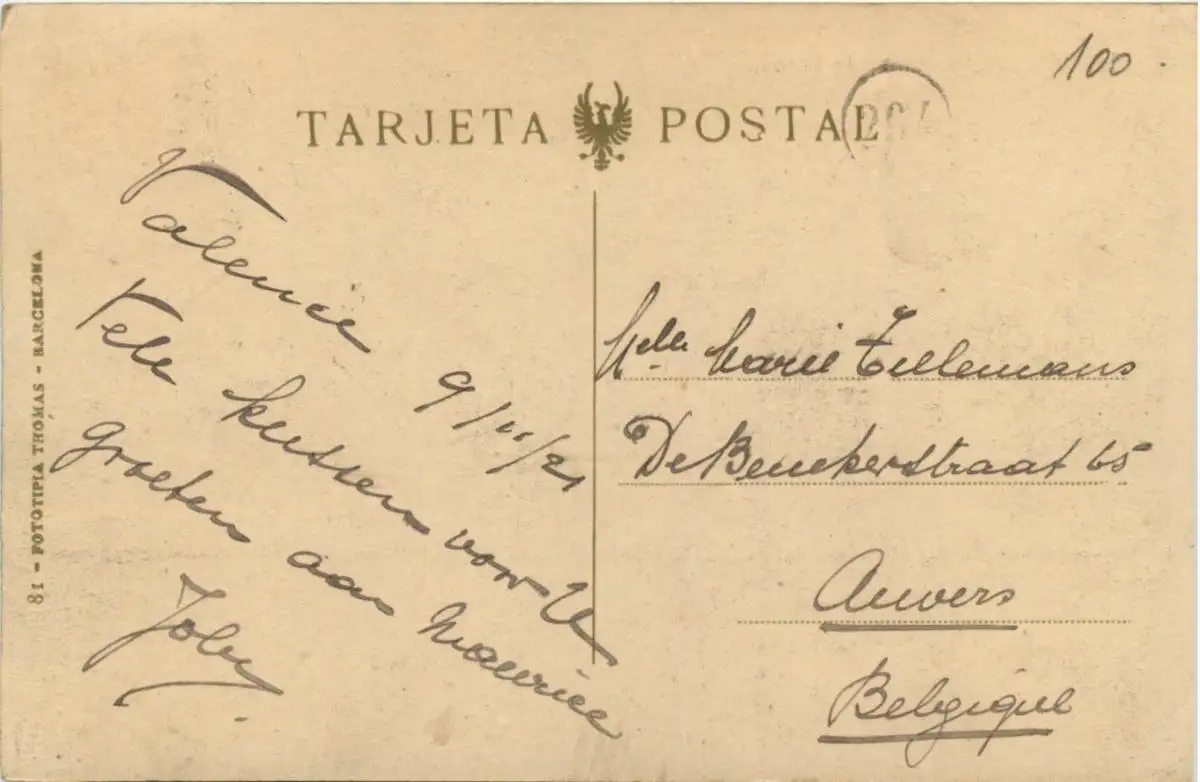 100
TARJETA POSTAL
Valencia 9/11/21
Vele kussen voor U
Groeten aan Maurice
Melle Marie Tillemans
De Beuckerstraat 65
Anvers
Belgique
81 - FOTOTIPIA THOMAS - BARCELONA